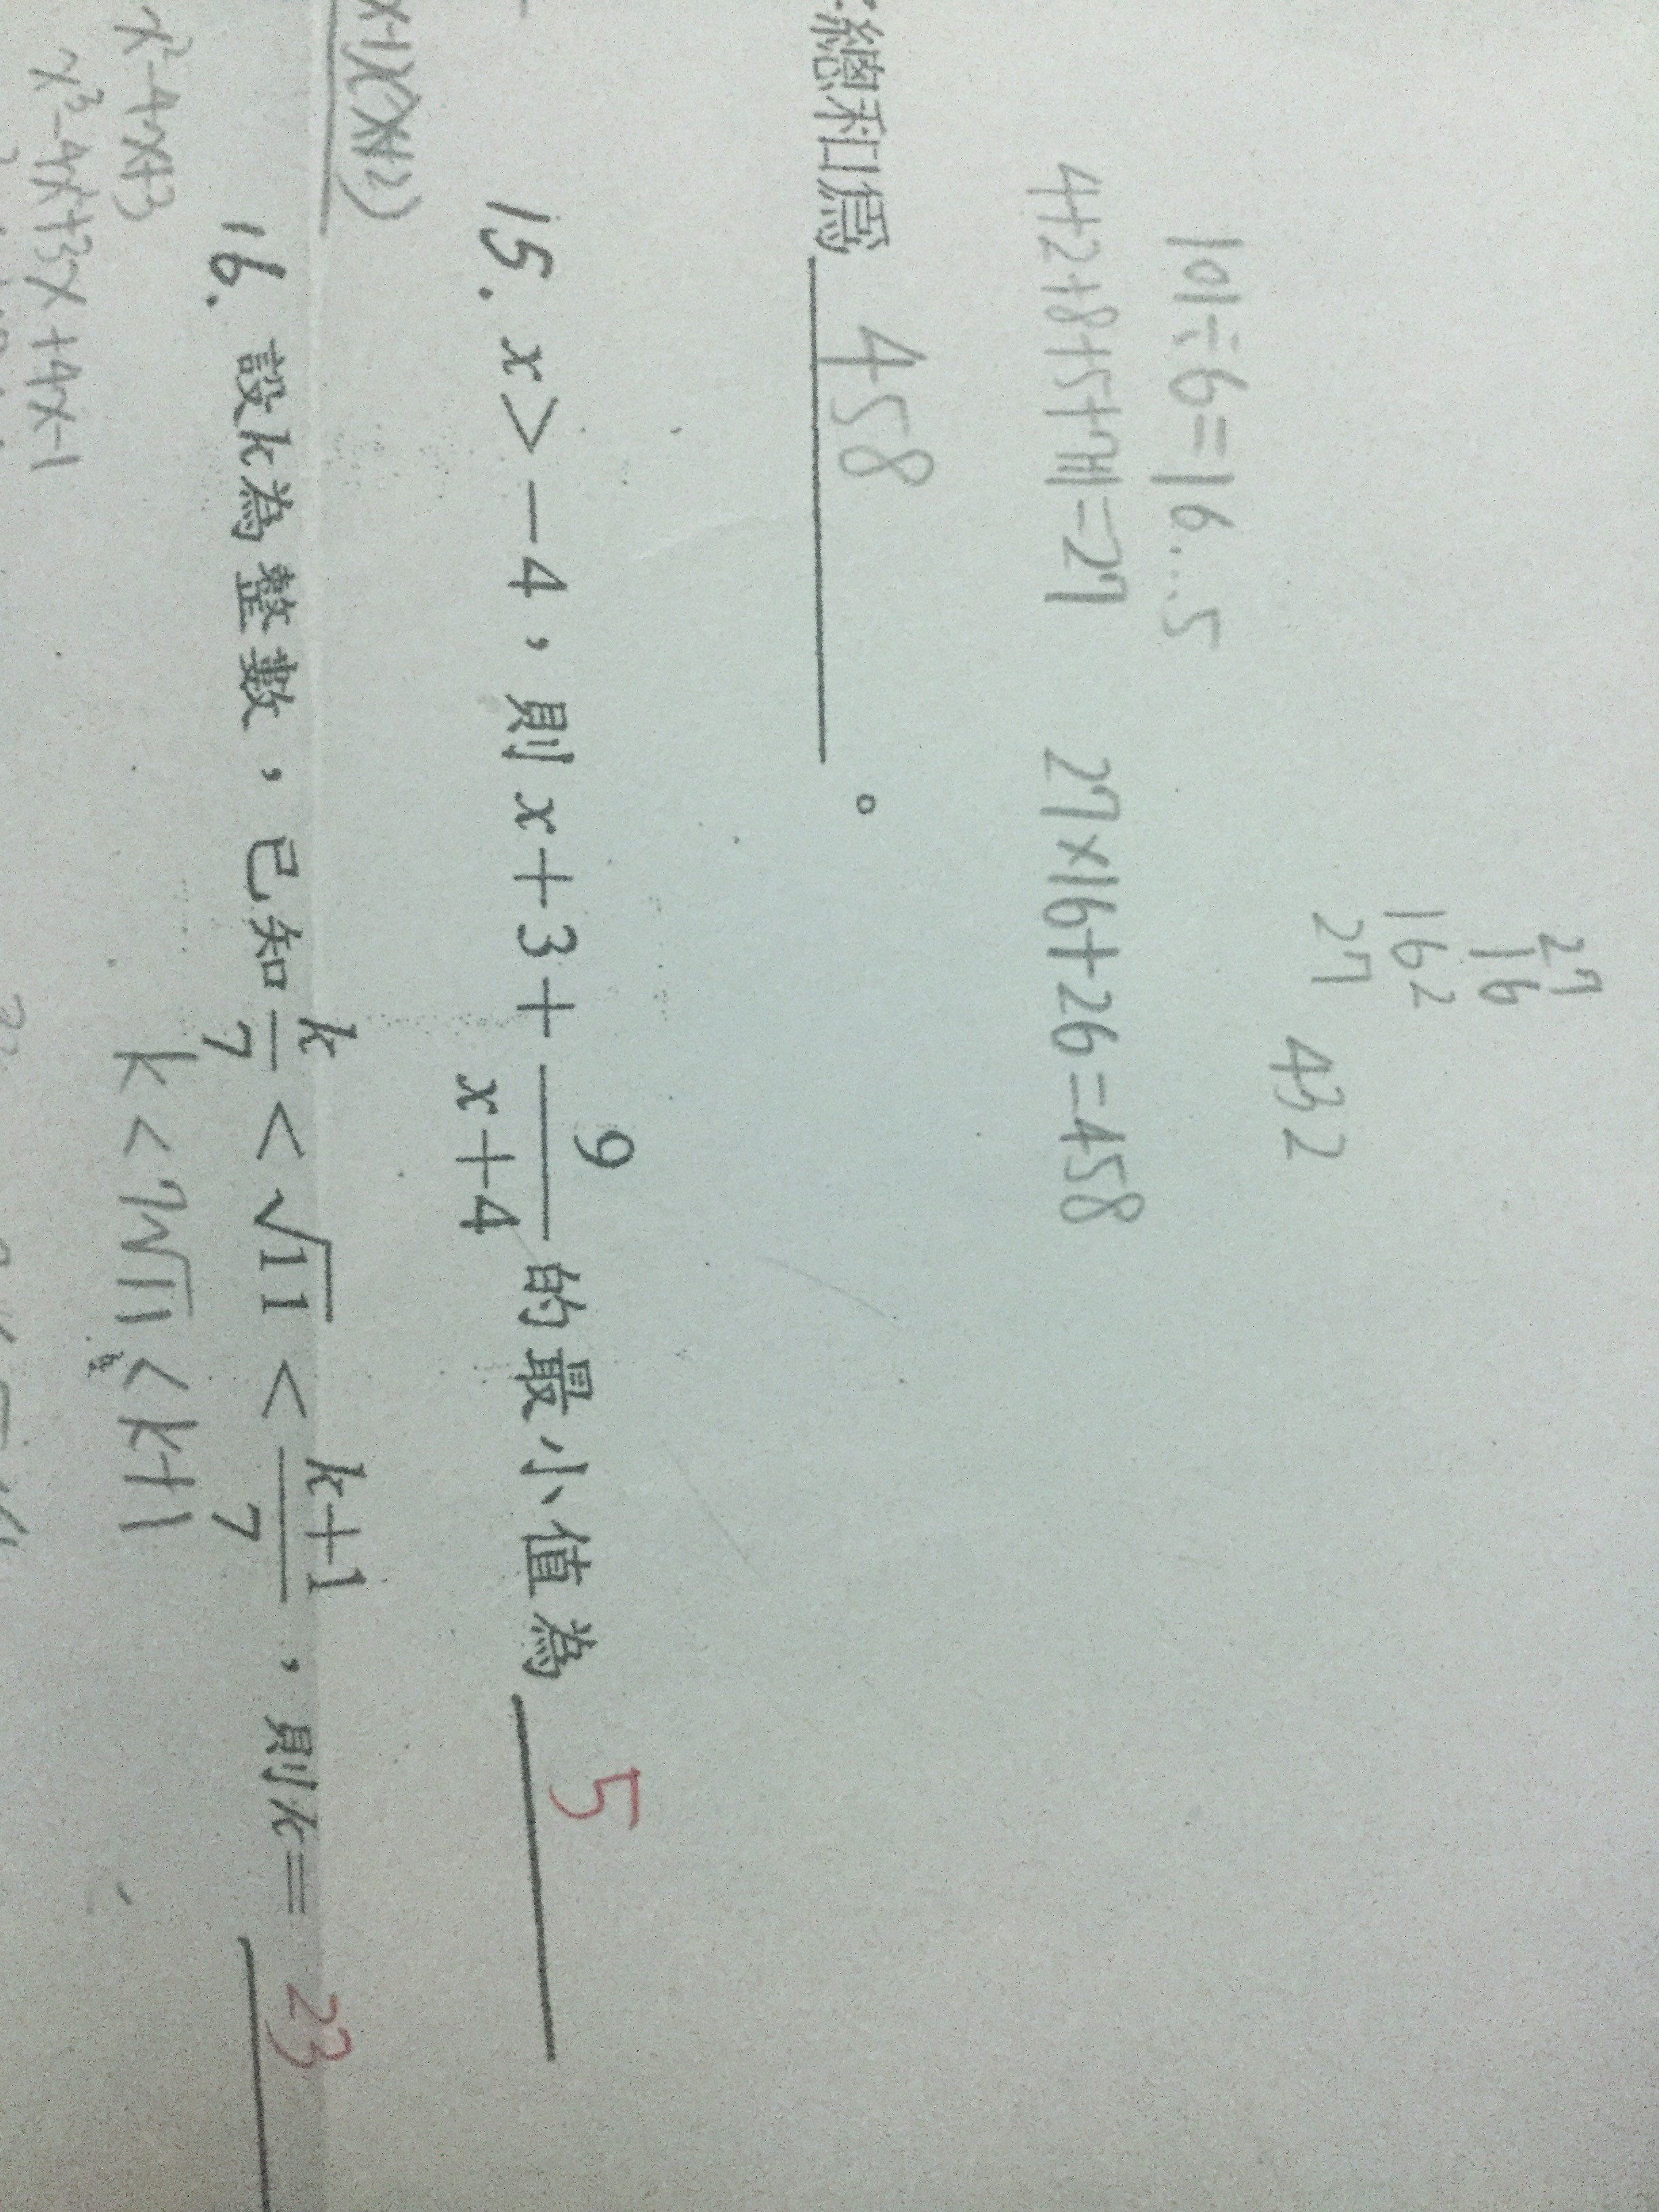 27
16
162
27
432
101÷6=16...5
4+2+8+5+7+1=27 27×16+26=458
總和爲 458 。
15. x>-4,則x+3+9/(x+4)的最小值為 5
x-1)(x+2)
16. 設k為整數,已知k/7<√11<(k+1)/7,則k= 23
k<7√11<k+1
x²-4x+3
x³-4x²+3x+4x-1